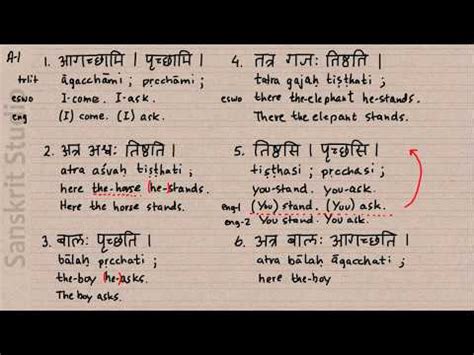 Sanskrit Studio
A-1
1. आगच्छामि । पृच्छामि ।
trlit āgacchāmi ; pṛcchāmi ;
eswo I-come. I-ask.
eng (I) come. (I) ask.
2. अत्र अश्वः तिष्ठति ।
atra aśvaḥ tiṣṭhati ;
here the-horse (he-)stands.
Here the horse stands.
3. बालः पृच्छति ।
bālaḥ pṛcchati ;
the-boy (he-)asks.
The boy asks.
4. तत्र गजः तिष्ठति ।
tatra gajaḥ tiṣṭhati ;
eswo there the-elephant he-stands.
There the elepant stands.
5. तिष्ठसि । पृच्छसि ।
tiṣṭhasi ; pṛcchasi ;
you-stand. you-ask.
eng-1 (You) stand. (You) ask.
eng-2 You stand. You ask.
6. अत्र बालः आगच्छति ।
atra bālaḥ āgacchati ;
here the-boy